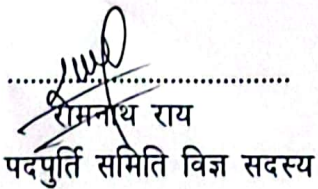 रामनाथ राय
पदपुर्ति समिति विज्ञ सदस्य